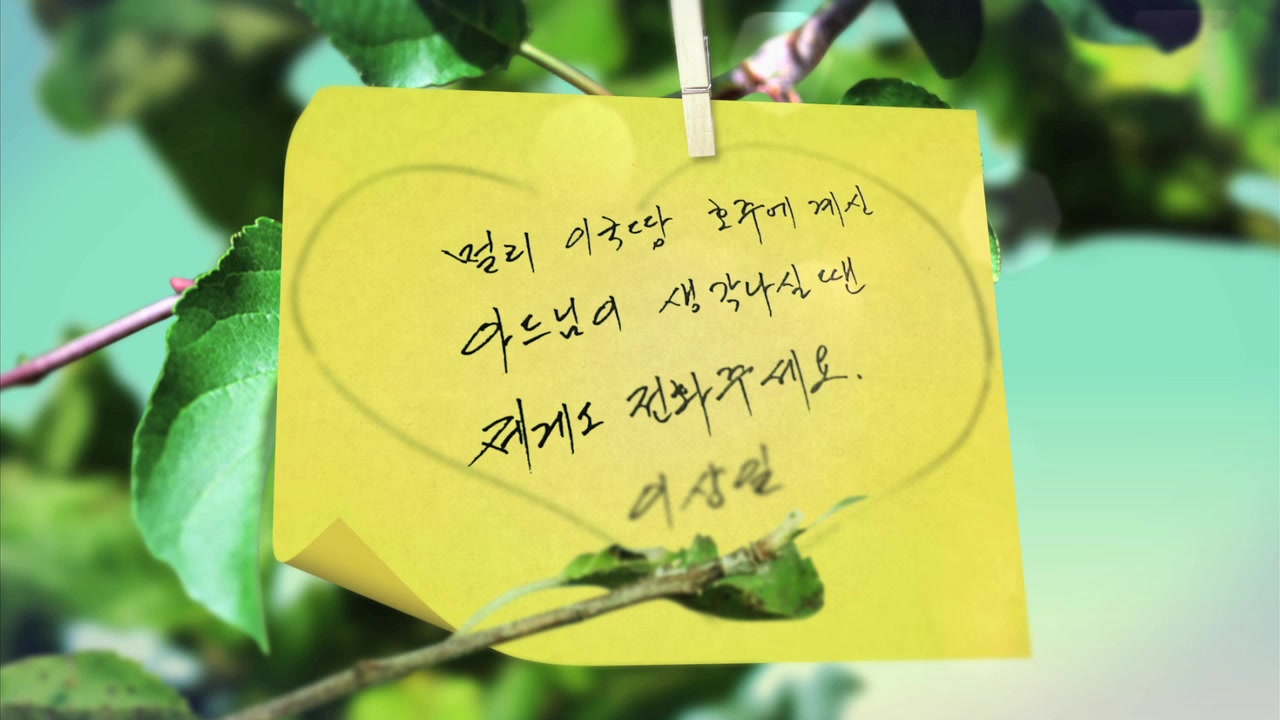 멀리 이국땅 호주에 계신
아드님이 생각나실 땐
제게도 전화주세요.
이상일